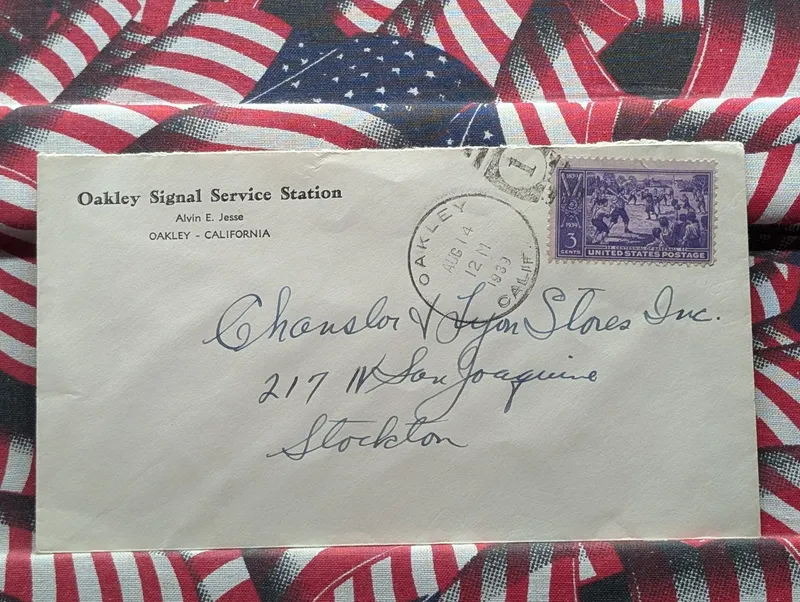 Oakley Signal Service Station
Alvin E. Jesse
OAKLEY - CALIFORNIA
OAKLEY
AUG 14
12 M
1939
CALIF.
1
1839
1939
3
CENTS
CENTENNIAL OF BASEBALL
UNITED STATES POSTAGE
Chanslor & Lyon Stores Inc.
217 N San Joaquine
Stockton